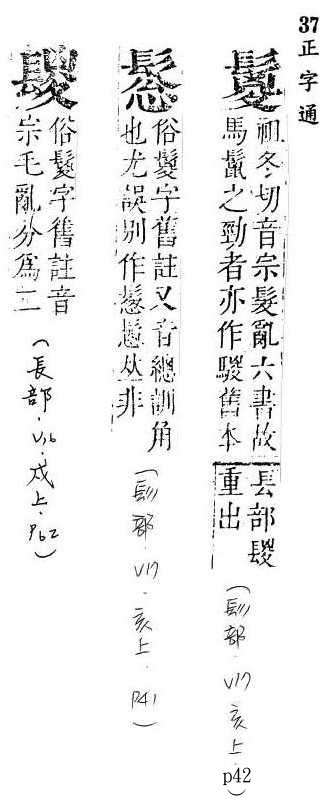 37正字通
鬉
祖冬切音宗髮亂六書故
馬鬣之勁者亦作騣舊本
長部䯶
重出
(髟部.V17.亥上.p42)
俗鬉字舊註又音總訓角
也尤誤別作
非
(髟部.V17.亥上.P41)
俗鬉字舊註音
宗毛亂分爲二
(長部.V16.戌上.P62)